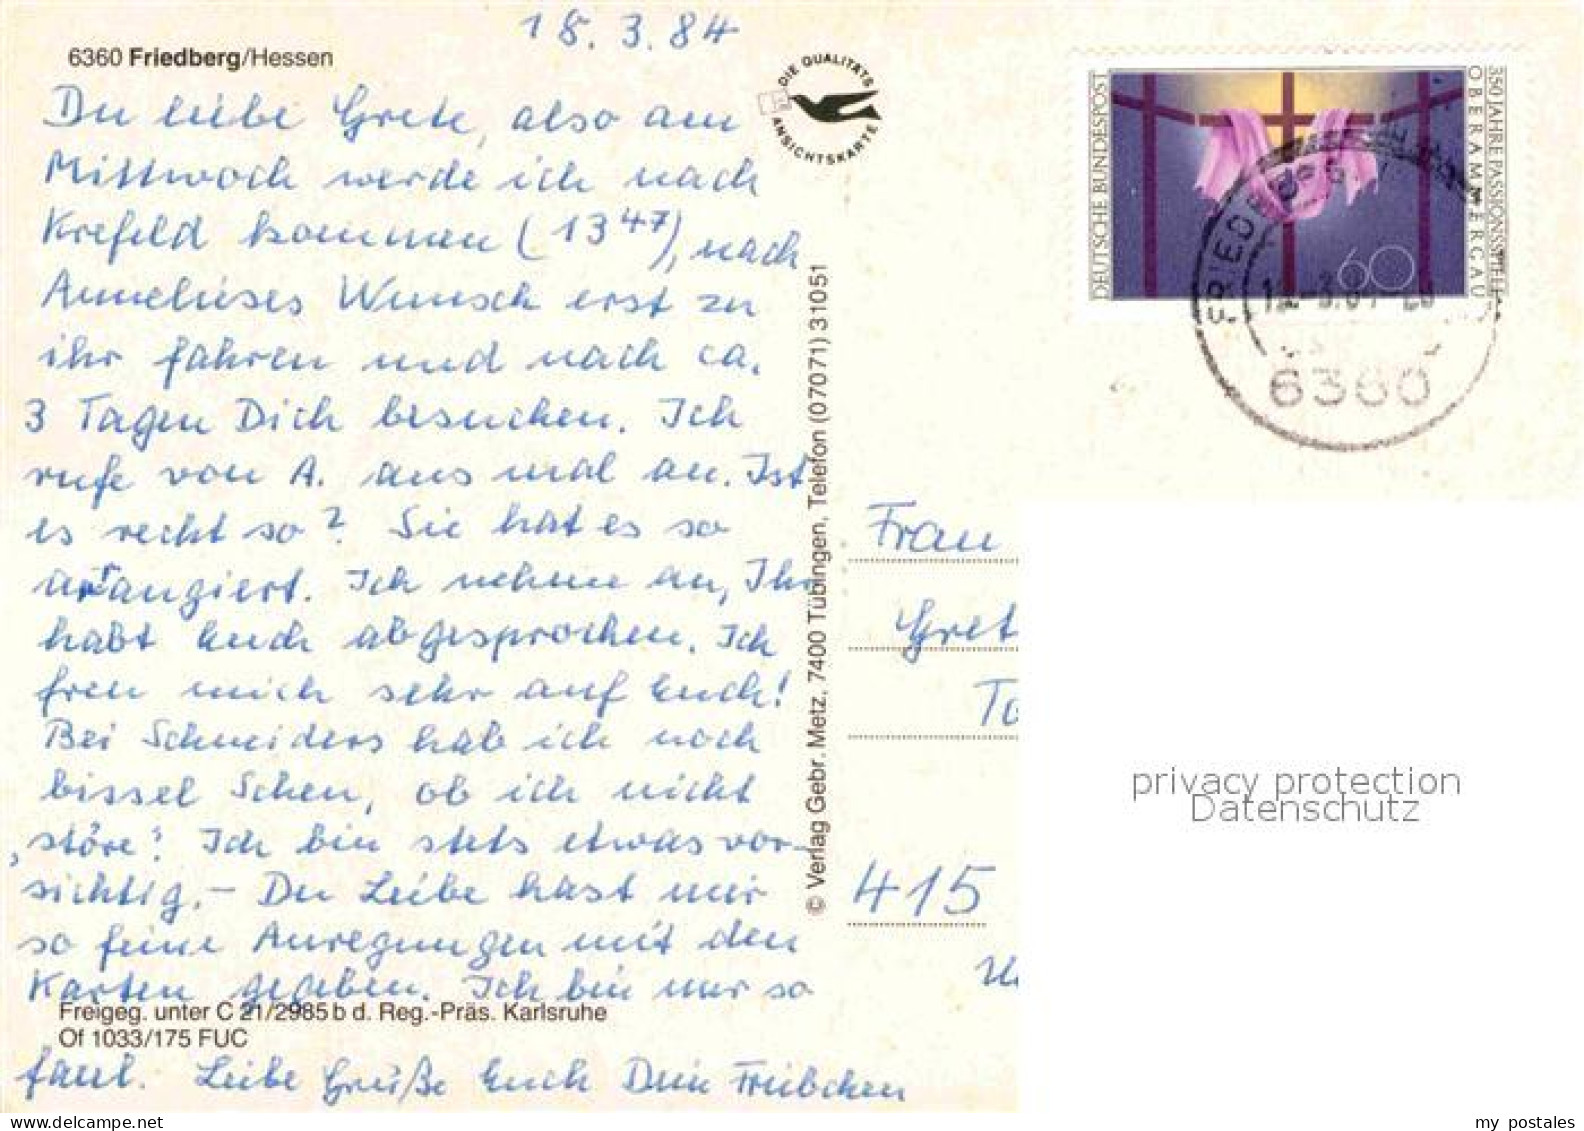 18.3.84
6360 Friedberg/Hessen
Du liebe Grete, also am
Mittwoch werde ich nach
Krefeld kommen (13 47), nach
Annelieses Wunsch erst zu
ihr fahren und nach ca.
3 Tagen Dich besuchen. Ich
rufe von A. aus mal an. Ist
es recht so? Sie hat es so
arrangiert. Ich nehme an, Ihr
habt Euch abgesprochen. Ich
freu mich sehr auf Euch!
Bei Schneiders hab ich noch
bissel Scheu, ob ich nicht
„störe“. Ich bin stets etwas vor-
sichtig. – Du Liebe hast mir
so feine Anregungen mit den
Karten gegeben. Ich bin nur so
Freigeg. unter C 21/2985 b d. Reg.-Präs. Karlsruhe
Of 1033/175 FUC
faul. Liebe Grüße Euch Dein Friebchen
DIE QUALITÄTS
ANSICHTSKARTE
© Verlag Gebr. Metz, 7400 Tübingen, Telefon (07071) 31051
DEUTSCHE BUNDESPOST
350 JAHRE PASSIONSSPIELE
OBERAMMERGAU
60
FRIEDBERG
6360
Frau
Gret
To
415
privacy protection
Datenschutz
my postales